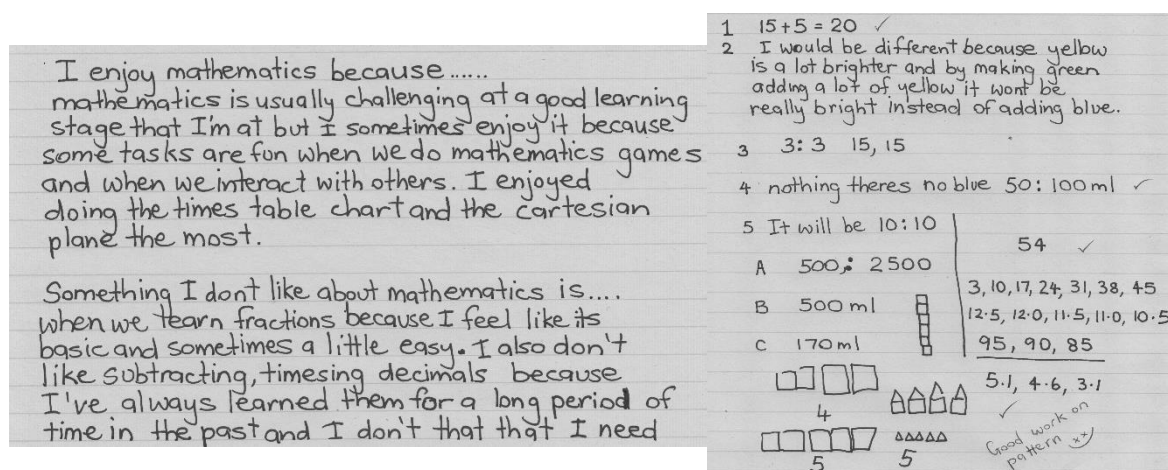 I enjoy mathematics because......
mathematics is usually challenging at a good learning
stage that I'm at but I sometimes enjoy it because
some tasks are fun when we do mathematics games
and when we interact with others. I enjoyed
doing the times table chart and the cartesian
plane the most.
Something I dont like about mathematics is....
when we learn fractions because I feel like its
basic and sometimes a little easy. I also don't
like subtracting, timesing decimals because
I've always learned them for a long period of
time in the past and I don't that that I need
1 15+5=20 ✓
2 I would be different because yellow
is a lot brighter and by making green
adding a lot of yellow it wont be
really bright instead of adding blue.
3 3:3 15, 15
4 nothing theres no blue 50:100ml ✓
5 It will be 10:10
A 500: 2500
B 500 ml
C 170ml
4
5
5
54 ✓
3, 10, 17, 24, 31, 38, 45
12.5, 12.0, 11.5, 11.0, 10.5
95, 90, 85
5.1, 4.6, 3.1
✓
Good work on
pattern